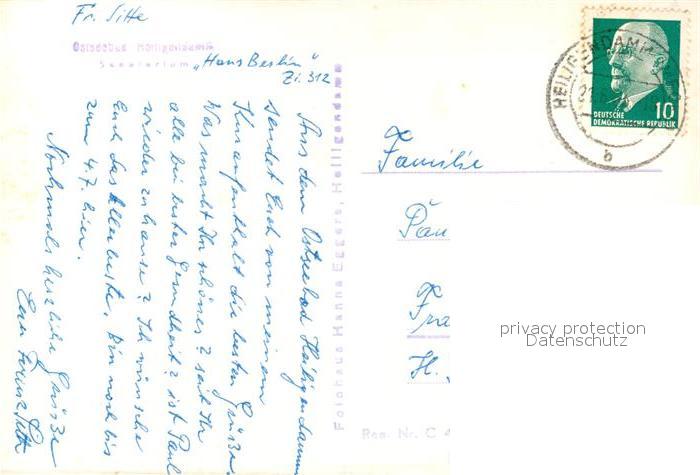 Fr. Sitte
Ostseebad Heiligendamm
Sanatorium „Haus Berlin"
Zi. 312
Aus dem Ostseebad Heiligendamm
sendet Euch von meinem
Kuraufenthalt die besten Grüße.
Was macht Ihr schönes? seid Ihr
alle bei bester Gesundheit? ist Paul
wieder zu hause? Ich wünsche
Euch das Allerbeste. Bin noch bis
zum 4.7. hier.
Nochmals herzliche Grüße
Euer Sitte
Fotohaus Hanna Eggers, Heiligendamm
HEILIGENDAMM
b
10
DEUTSCHE
DEMOKRATISCHE REPUBLIK
Familie
Pau
Fra
H.
privacy protection
Datenschutz
Reg. Nr. C 4